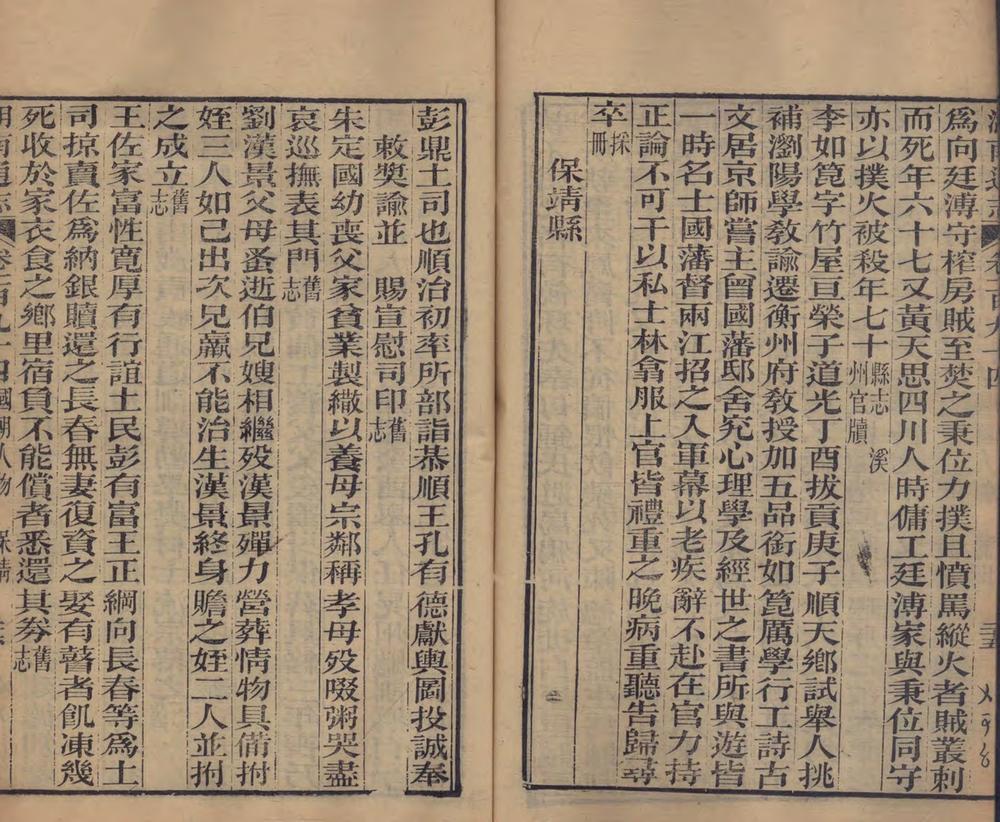 為向廷溥守榨房賊至焚之秉位力撲且憤罵縱火者賊叢刺
而死年六十七又黃天思四川人時傭工廷溥家與秉位同守
亦以撲火被殺年七十縣志瀘溪州官牘
李如篦字竹屋亘榮子道光丁酉拔貢庚子順天鄉試舉人挑
補瀏陽學教諭遷衡州府教授加五品銜如篦厲學行工詩古
文居京師嘗主曾國藩邸舍究心理學及經世之書所與遊皆
一時名士國藩督兩江招之入軍幕以老疾辭不赴在官力持
正論不可干以私士林翕服上官皆禮重之晚病重聽告歸尋
卒採冊
保靖縣
彭鼎土司也順治初率所部詣恭順王孔有德獻輿圖投誠奉
敕獎諭並 賜宣慰司印舊志
朱定國幼喪父家貧業製繖以養母宗鄰稱孝母歿啜粥哭盡
哀巡撫表其門舊志
劉漢景父母蚤逝伯兄嫂相繼歿漢景殫力營葬情物具備拊
姪三人如己出次兄羸不能治生漢景終身贍之姪二人並拊
之成立舊志
王佐家富性寬厚有行誼土民彭有富王正綱向長春等為土
司掠賣佐為納銀贖還之長春無妻復資之娶有瞽者飢凍幾
死收於家衣食之鄉里宿負不能償者悉還其券舊志